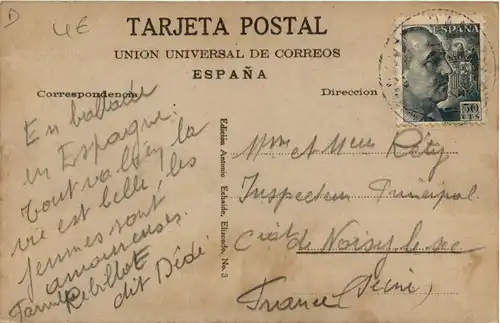 D
4E
TARJETA POSTAL
UNION UNIVERSAL DE CORREOS
ESPAÑA
Correspondencia
Direccion
ESPAÑA
50
CTS
En ballade
en Espagne.
tout va bien la
vie est belle, les
femmes sont
amoureuses.
Famille Rebillot
dit Dédé.
Edición Antonio Echaide, Elizondo, No. 5
Mme et Mr
Inspecteur Principal
de Noisy le sec
France (Seine)